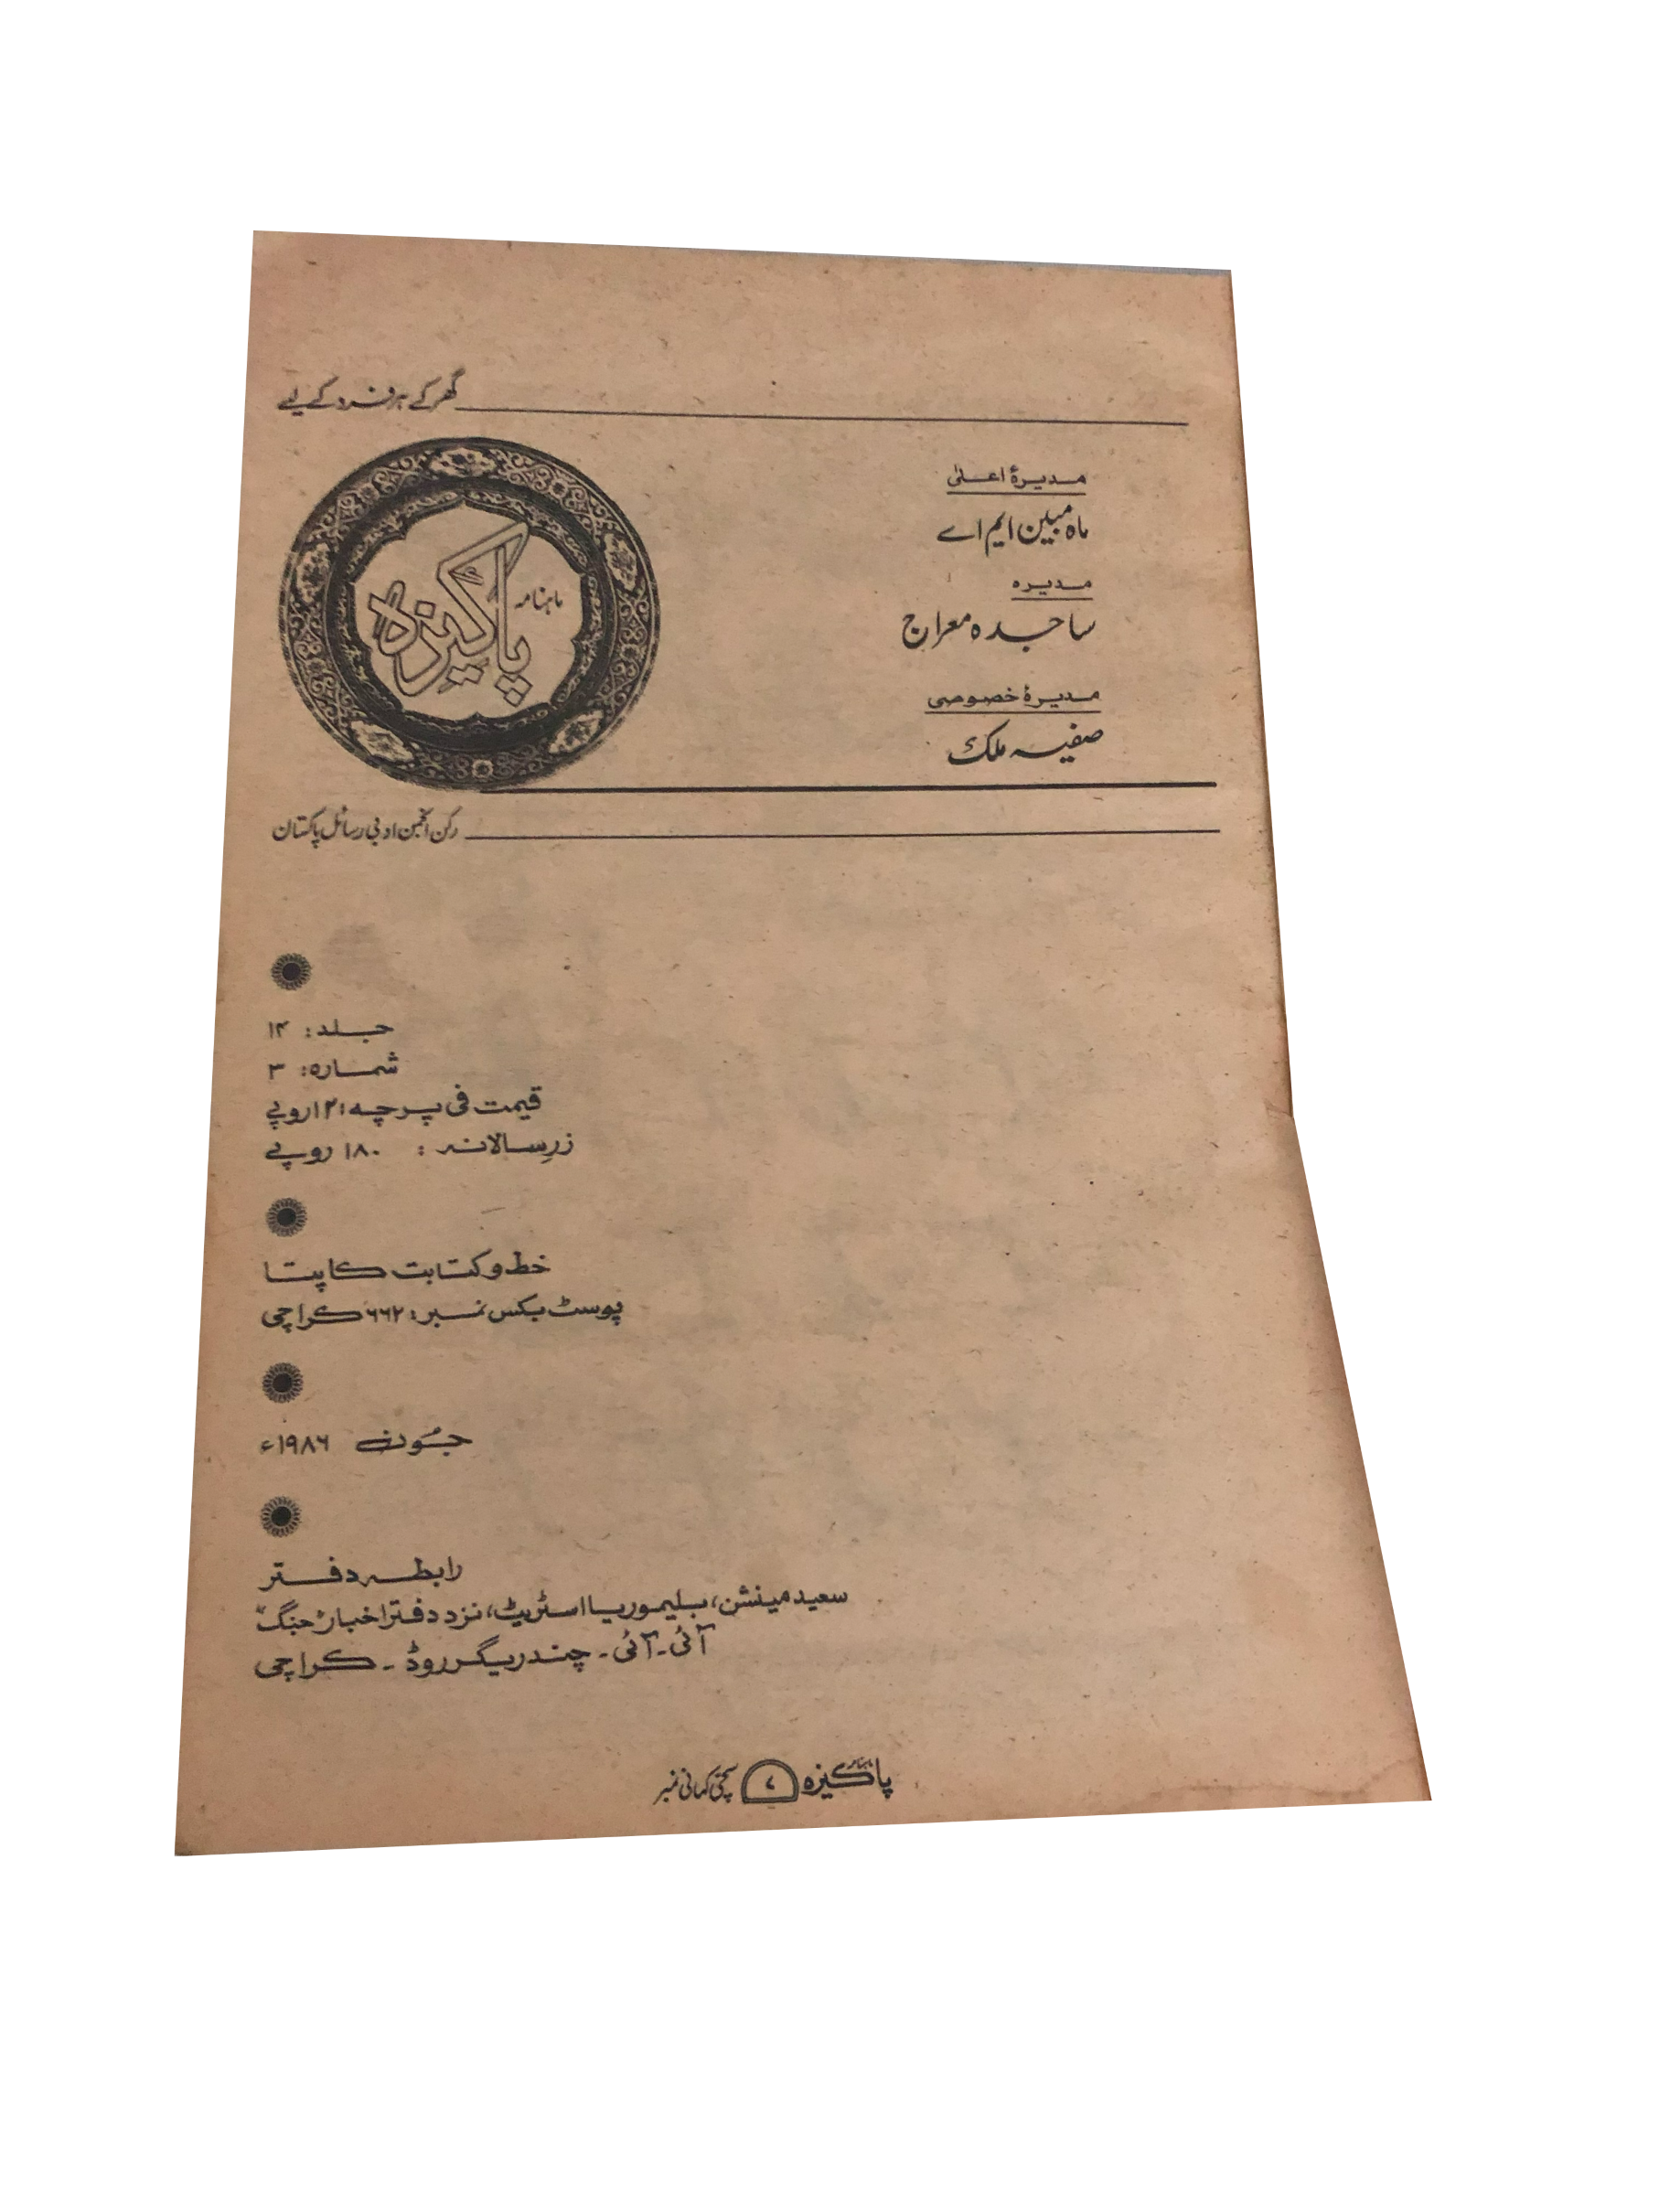 گھر کے ہر فرد کے لیے
مدیرۂ اعلیٰ
ماہ مبین ایم اے
مدیرہ
ساجدہ معراج
مدیرۂ خصوصی
صفیہ ملک
ماہنامہ
پاکیزہ
رکن انجمن ادبی رسائل پاکستان
جلد: ۱۴
شمارہ: ۳
قیمت فی پرچہ: ۱۲ روپے
زرِسالانہ: ۱۸۰ روپے
خط و کتابت کا پتا
پوسٹ بکس نمبر: ۶۶۲ کراچی
جُون ۱۹۸۶ء
رابطہ دفتر
سعید مینشن، بلیموریا اسٹریٹ، نزد دفتر اخبار جنگ
آئی۔ آئی۔ چندریگر روڈ۔ کراچی
پاکیزہ ۷ سچی کہانی نمبر